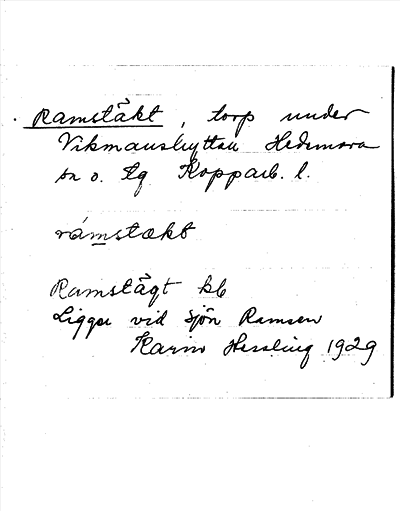 Ramstäkt, torp under
Vikmanshyttan Hedemora
sn o. tg Kopparb. l.
rámstækt
Ramstägt kb
Ligger vid sjön Ramsen
Karin Hessling 1929